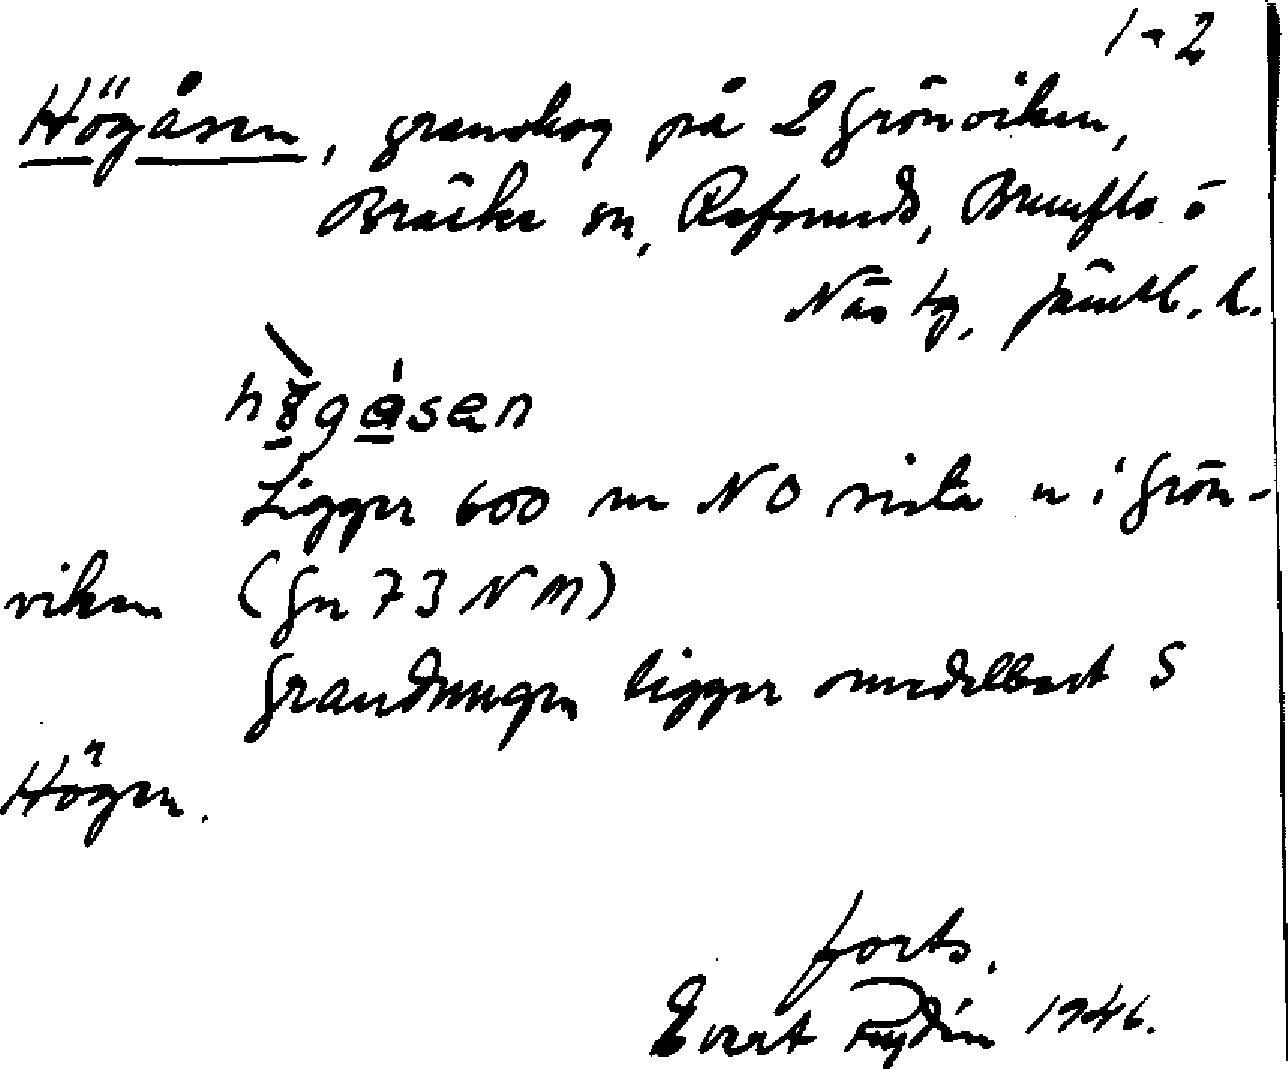 1-2
Högåsen, granskog på 2 Grönviken,
Bräcke sn, Refsunds, Brunflo o
Näs tg, Jämtl. l.
hö̱ga̱sen
Ligger 600 m NO sista n i Grön-
viken (Gn 73 NM)
Grandungen ligger omedelbart S
Högen.
forts.
Evert 1946.